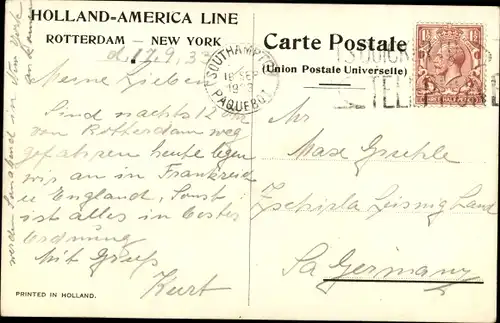 HOLLAND-AMERICA LINE
ROTTERDAM – NEW YORK
d. 17.9.33
Meine Lieben
Sind nachts 12 Uhr
von Rotterdam weg
gefahren heute legen
wir an in Frankreich
u England, Sonst
ist alles in bester
Ordnung
Mit Gruss
Kurt
PRINTED IN HOLLAND.
werden Sonnabend in New York
SOUTHAMPTON
18 SEP
PAQUEBOT
Carte Postale
(Union Postale Universelle)
Mr
Max
Leissig Land
Sa Germany